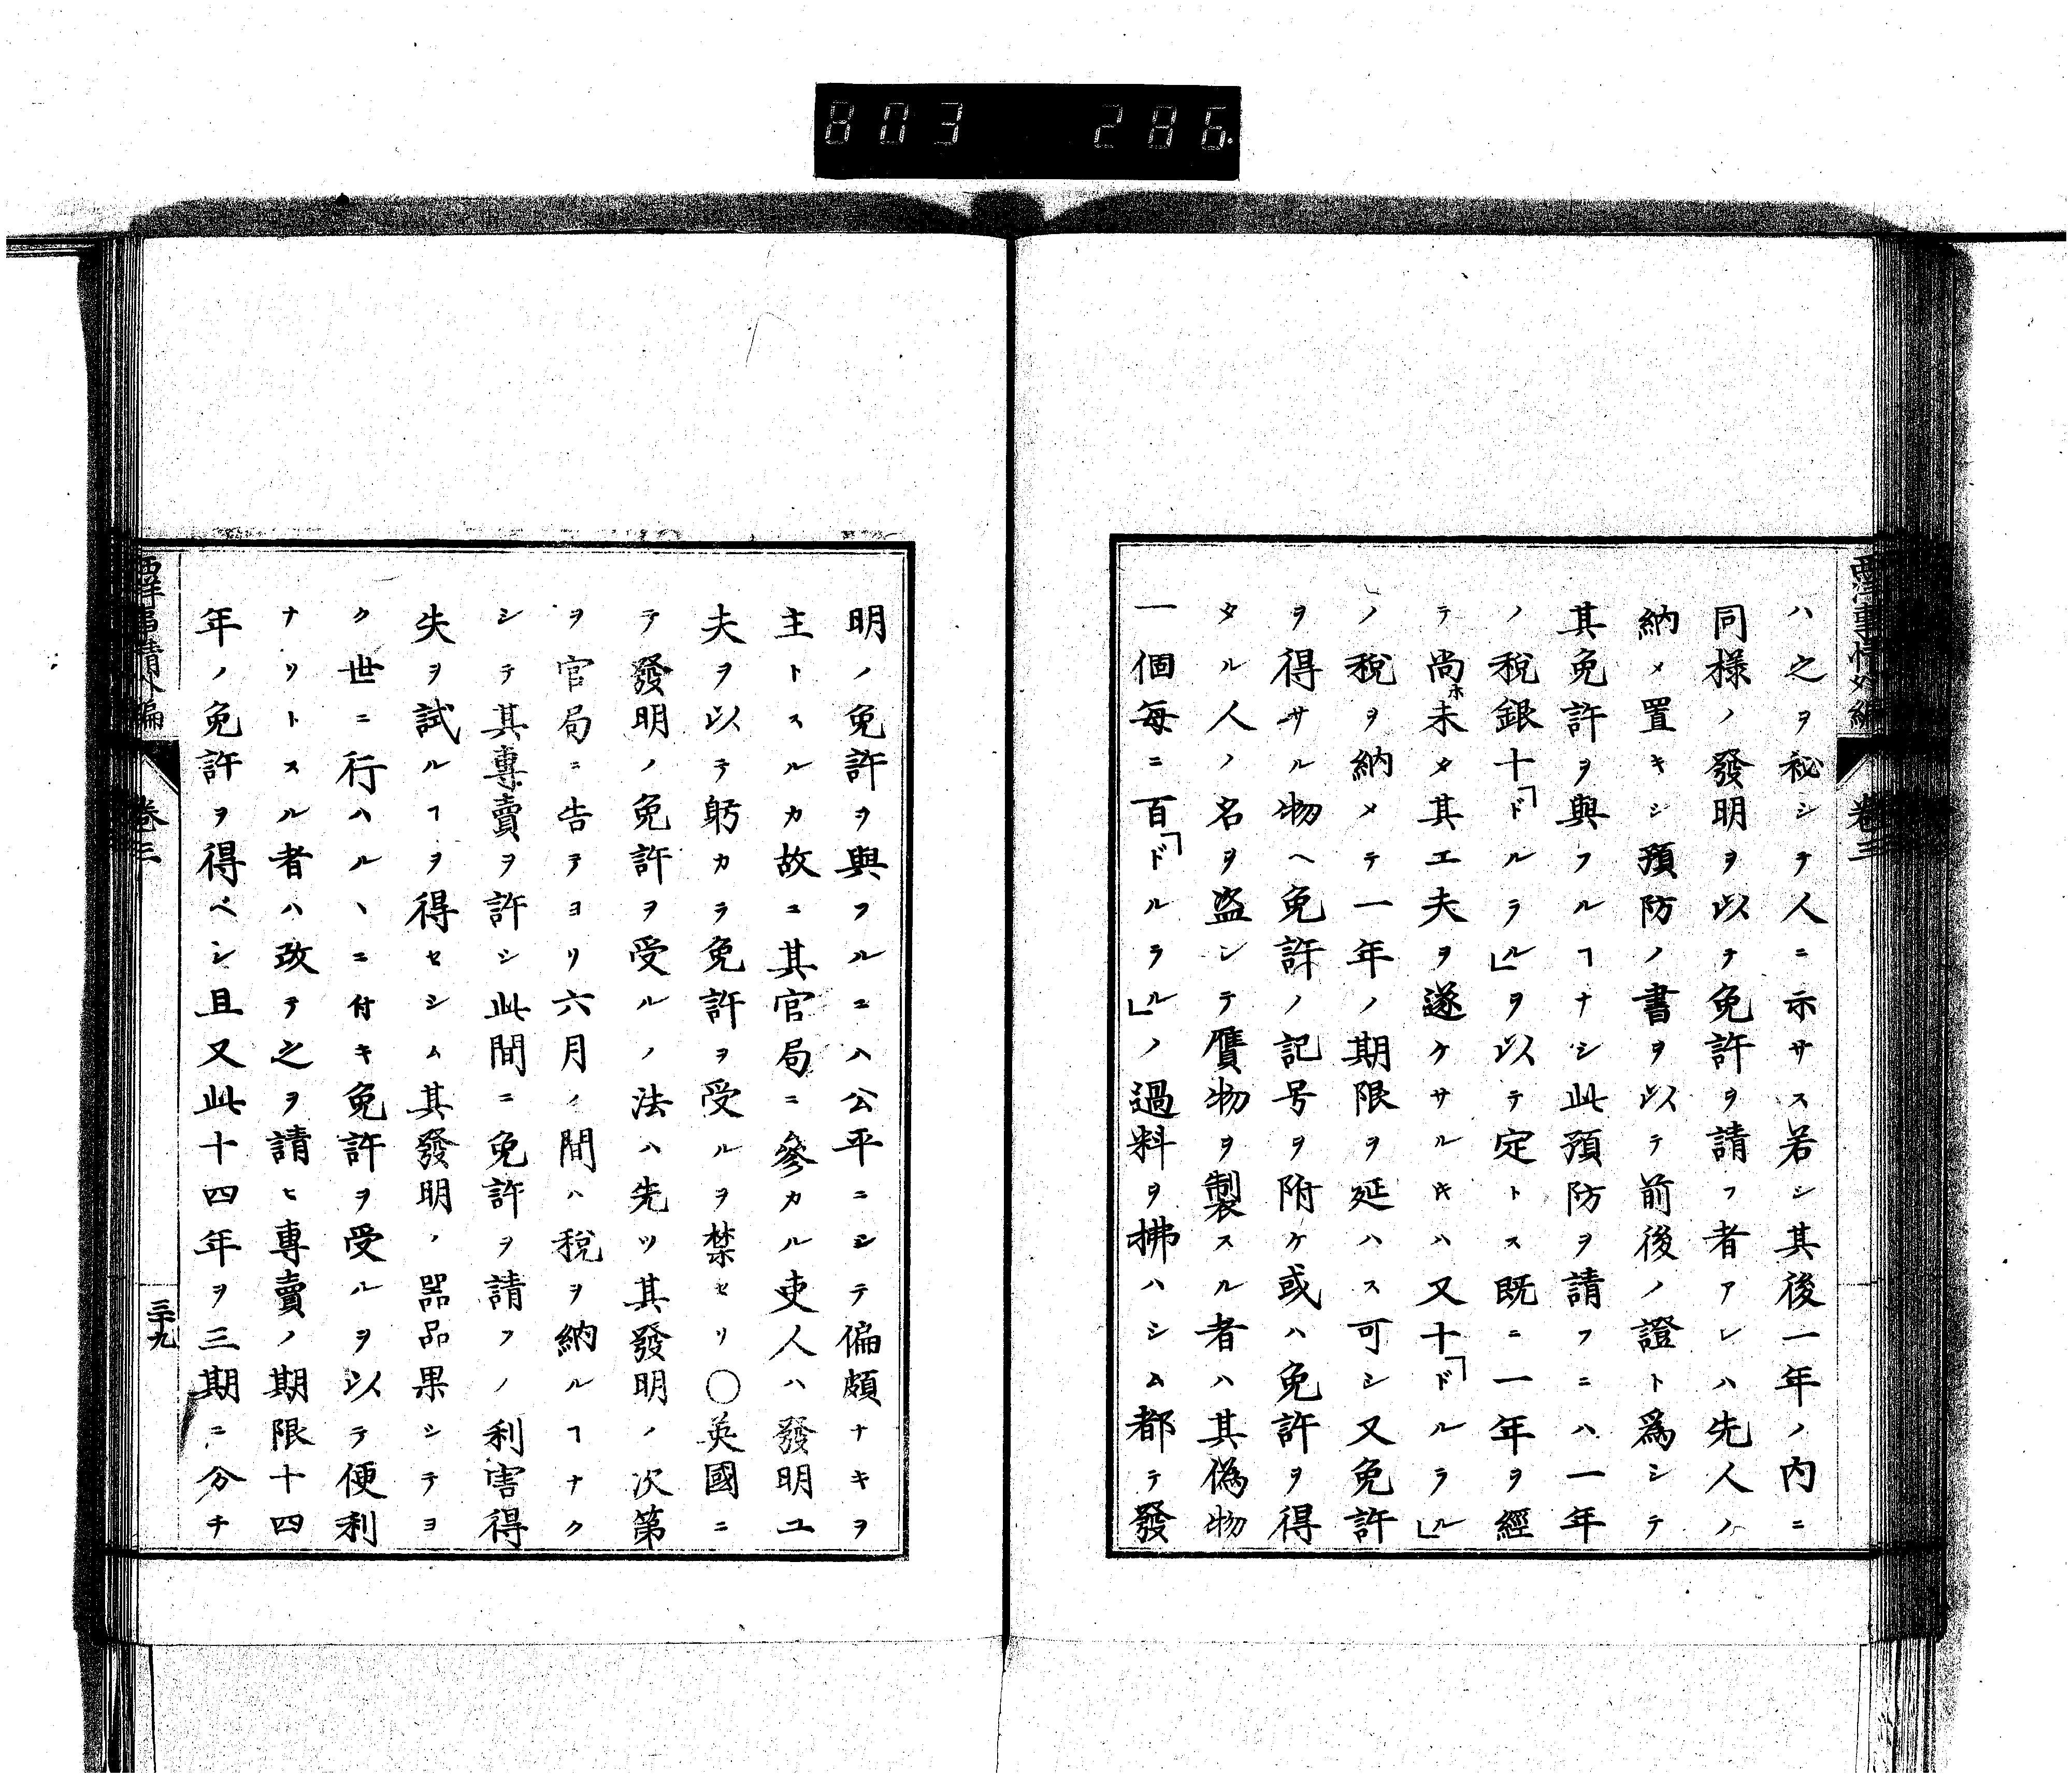 803 286
西洋事情外編 卷三
ハ之ヲ祕シテ人ニ示サス若シ其後一年ノ内ニ
同様ノ發明ヲ以テ免許ヲ請フ者アレハ先人ノ
納メ置キシ預防ノ書ヲ以テ前後ノ證ト爲シテ
其免許ヲ與フルヿナシ此預防ヲ請フニハ一年
ノ税銀十「ドルラル」ヲ以テ定トス既ニ一年ヲ經
テ尚ホ未タ其工夫ヲ遂ケサルキハ又十「ドルラル」
ノ税ヲ納メテ一年ノ期限ヲ延ハス可シ又免許
ヲ得サル物ヘ免許ノ記号ヲ附ケ或ハ免許ヲ得
タル人ノ名ヲ盗ンテ贋物ヲ製スル者ハ其偽物
一個毎ニ百「ドルラル」ノ過料ヲ拂ハシム都テ發
明ノ免許ヲ與フルニハ公平ニシテ偏頗ナキヲ
主トスルカ故ニ其官局ニ參カル吏人ハ發明エ
夫ヲ以テ躬カラ免許ヲ受ルヲ禁セリ〇英國ニ
テ發明ノ免許ヲ受ルノ法ハ先ツ其發明ノ次第
ヲ官局ニ告テヨリ六月ノ間ハ税ヲ納ルヿナク
シテ其專賣ヲ許シ此間ニ免許ヲ請フノ利害得
失ヲ試ルヿヲ得セシム其發明ノ器品果シテヨ
ク世ニ行ハルヽニ付キ免許ヲ受ルヲ以テ便利
ナリトスル者ハ改テ之ヲ請ヒ專賣ノ期限十四
年ノ免許ヲ得ベシ且又此十四年ヲ三期ニ分チ
西洋事情外編 卷三 三十九